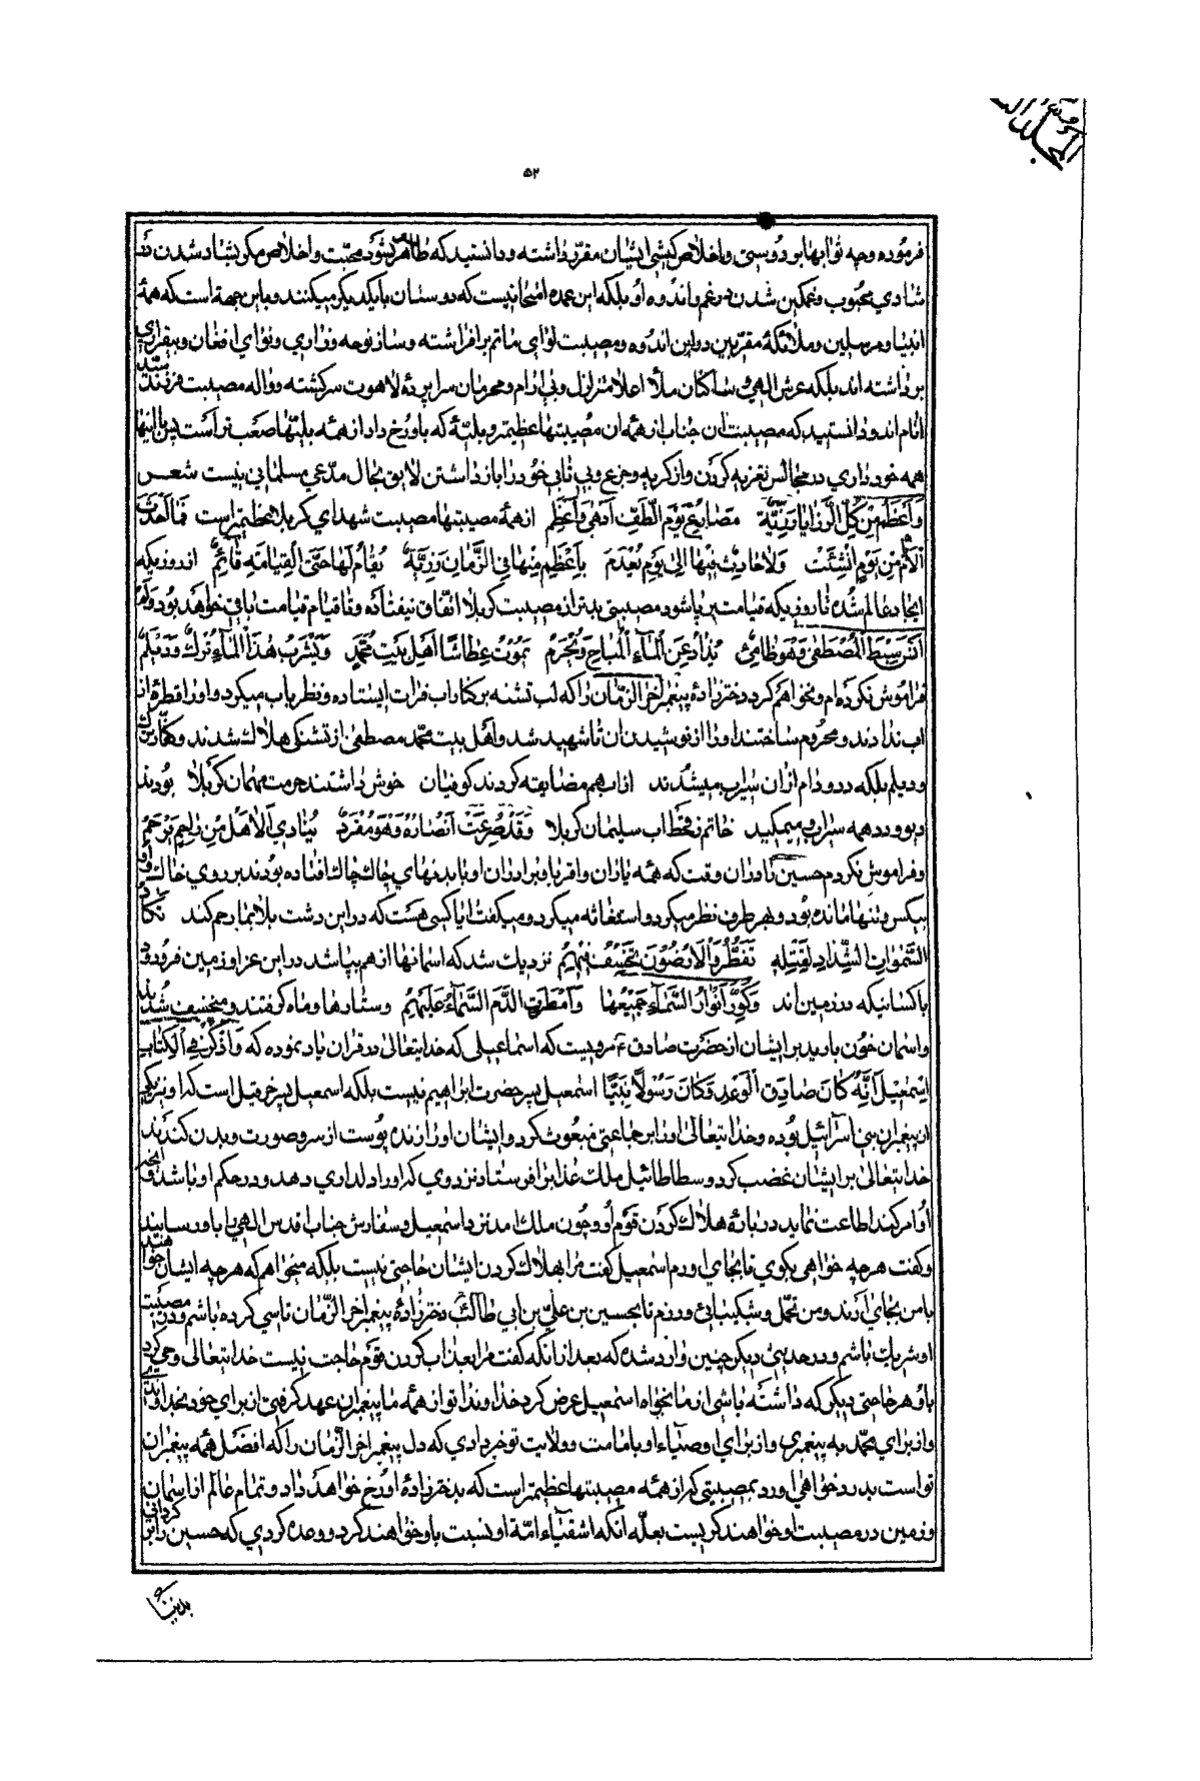 ۵۲
فرموده وچه ثوابها بر دوستی واخلاص کیشی ایشان مقرر داشته ودانستید که ظاهر نشود محبت واخلاص مکر بشاد شدن در
شادی محبوب وغمکین شدن در غم واندوه او بلکه این عمده امتحانیست که دوستان با یکدیکر میکنند وباین جهة است که همهٔ
انبیا ومرسلین وملائکهٔ مقربین در این اندوه ومصیبت لوای ماتم برافراشته وساز نوحه وزاری ونوای افغان وبیقراری
برداشته اند بلکه عرش الهی وساکنان ملأ اعلا متزلزل وبی ارام ومحرمان سراپردهٔ لاهوت سرکشته وواله مصیبت فرزند سید
انام اند ودانستید که مصیبت ان جناب از همهٔ ان مصیبتها عظیمتر وبلیهٔ که باو رخ داد از همه بلیتها صعب تر است پس با اینها
همه خود داری در مجالس تعزیه کردن واز کریه وجزع وبی تابی خود را باز داشتن لایق بحال مدعی مسلمانی نیست شعر
وَاَعْظَمُ مِنْ کُلِّ الرَّزایا رَزِیَّة مَصارِعُ یَوْمِ الطَّفِّ اَدْهی وَاَعْظَم از همهٔ مصیبتها مصیبت شهدای کربلا عظیمتر است فَما اَحْدَثَ
الْاَیّامُ مِنْ یَوْمٍ اُنْشِئَتْ وَلا حادِثٌ فیها اِلی یَوْمِ تُعْدَم بِاَعْظَمَ مِنْها فِی الزَّمانِ رَزِیَّة یُقامُ لَها حَتَّی الْقِیامَةِ مَأْتَم از روزیکه
ایجاد عالم شده تا روزیکه قیامت برپا شود مصیبتی بدتر از مصیبت کربلا اتفاق نیفتاده وتا قیام قیامت باقی خواهد بود وَلَمْ
اَنْسَ سِبْطَ الْمُصْطَفی وَهُوَ ظامِئٌ یُذادُ عَنِ الْمآءِ الْمُباحِ وَیُحْرَمُ یَمُوتُ عِطاشًا اَهْلُ بَیْتِ مُحَمَّدٍ وَیَشْرَبُ هٰذَا الْمآءَ تُرْكٌ وَدَیْلَمُ
فراموش نکرده ام ونخواهم کرد دختر زادهٔ پیغمبر اخر الزمان را که لب تشنه بر کنار اب فرات ایستاده ونظر باب میکرد واو را قطرهٔ از
اب ندادند ومحروم ساختند او را از نوشیدن ان تا شهید شد واهل بیت محمد مصطفی از تشنکی هلاك شدند وکفار ترك
ودیلم بلکه دد ودام از ان سیراب میشدند از اب هم مضایقه کردند کوفیان خوش داشتند حرمت مهمان کربلا بودند
دیو ودد همه سیراب ومیمکید خاتم ز قحط اب سلیمان کربلا وَقَدْ صُرِعَتْ اَنْصارُهُ وَهُوَ مُفْرَدٌ یُنادی اَلا هَلْ مِنْ راحِمٍ یَرْحَمُ
وفراموش نکردم حسین را در ان وقت که همه یاران واقربا وبرادران او با بدنهای چاك چاك افتاده بودند بر روی خاك واو
بیکس وتنها مانده بود وبهر طرف نظر میکرد واستغاثه میکرد ومیکفت ایا کسی هست که در این دشت بلا بما رحم کند تَکادُ
السَّمواتُ الشِّدادُ لِقَتْلِهِ تَفَطَّرُ وَالْاَرْضُونَ تَخْسِفُ فیهِمُ نزدیك شد که اسمانها از هم بپاشد در این عزا وزمین فرو رود
با کسانیکه در زمین اند وَکُوِّرَ اَنْوارُ السَّمآءِ جَمیعُها وَاَمْطَرَتِ الدَّمَ السَّمآءُ عَلَیْهِمُ وستارها وماه کرفتند ومنخسف شدند
واسمان خون بارید بر ایشان از حضرت صادق ع مرویست که اسماعیلی که خدایتعالی در قران یاد نموده که وَاذْکُرْ فِی الْکِتابِ
اِسْمعیلَ اِنَّهُ کانَ صادِقَ الْوَعْدِ وَکانَ رَسُولًا نَبِیًّا اسمعیل پسر حضرت ابراهیم نیست بلکه اسمعیل پسر حزقیل است که او نیز یکی
از پیغمبران بنی اسرآئیل بوده وخدایتعالی او را بر جماعتی مبعوث کرد وایشان او را زنده پوست از سر وصورت وبدن کندند
خدایتعالی بر ایشان غضب کرد وسطاطائیل ملك عذاب را فرستاد نزد وی که او را دلداری دهد ودر حکم او باشد وانچه
او امر کند اطاعت نماید در بارهٔ هلاك کردن قوم او وچون ملك امد نزد اسمعیل وسفارش جناب اقدس الهی را باو رسانید
وکفت هر چه خواهی بکوی تا بجای اورم اسمعیل کفت مرا بهلاك کردن ایشان حاجتی نیست بلکه میخواهم که هر چه ایشان خواهند
با من بجای آرند ومن تحمل وشکیبائی ورزم تا بحسین بن علی بن ابی طالب دختر زادهٔ پیغمبر اخر الزمان تاسی کرده باشم ودر مصیبت
او شریك باشم ودر حدیثی دیکر چنین وارد شده که بعد از انکه کفت مرا بعذاب کردن قوم حاجت نیست خدایتعالی وحی کرد
باو هر حاجتی دیکر که داشته باشی از ما بخواه اسمعیل عرض کرد خداوندا تو از همه ما پیغمبران عهد کرفتی از برای خود بخداوندی
واز برای محمد به پیغمبری واز برای اوصیاء او بامامت وولایت تو خبر دادی که دل پیغمبر اخر الزمان را که افضل همه پیغمبران
تو است بدرد خواهی اورد بمصیبتی که از همه مصیبتها عظیمتر است که بدختر زادهٔ او رخ خواهد داد وتمام عالم از اسمان
وزمین در مصیبت او خواهند کریست بعلة آنکه اشقیاء امة او نسبت باو خواهند کرد ووعده کردی که حسین را بر کردانی
بدنیا